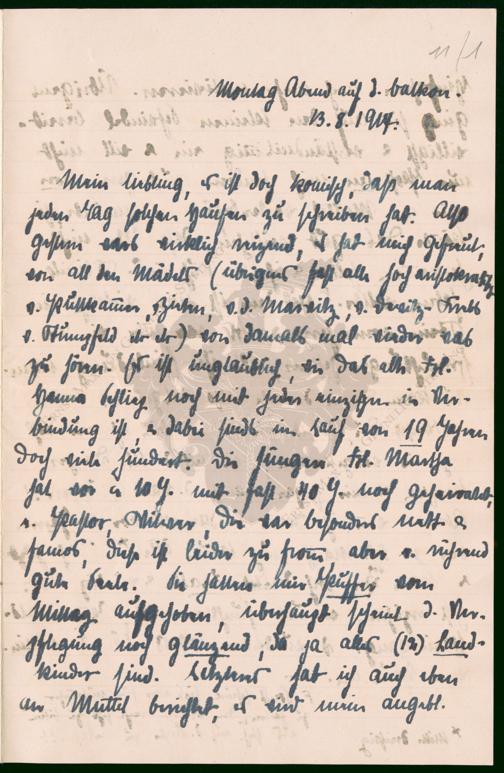 11/1
Montag Abend auf d. balkon.
13.8.1917.
Mein liebling, es ist doch komisch, daß man
jeden Tag solchen Haufen zu schreiben hat. Also
gestern wars wirklich reizend, es hat mich gefreut,
von all den Mädels (übrigens fast alle hocharistokratisch
v. Puttkamer, Zieten, v.d. Marwitz, v. Dewitz-Krebs
v. etc etc) von damals mal wieder was
zu hören. Es ist unglaublich, wie das alte Frl.
Hanna Schlieg noch mit jeder einzigen in Ver-
bindung ist, u dabei sinds im Lauf von 19 Jahren
doch viele hundert. Die jüngere Frl. Martha
hat vor ca 10 J. mit fast 40 J. noch geheiratet,
e. Pastor, Witwer, die war besonders nett u
famos, diese ist leider zu fromm aber e. rührend
gute Seele. Sie hatten mir Puffer vom
Mittag aufgehoben, überhaupt scheint d. Ver-
pflegung noch glänzend, da ja alles (12) Land-
kinder sind. Letzteres hat ich auch eben
an Muttel berichtet, es wird mein angebl.